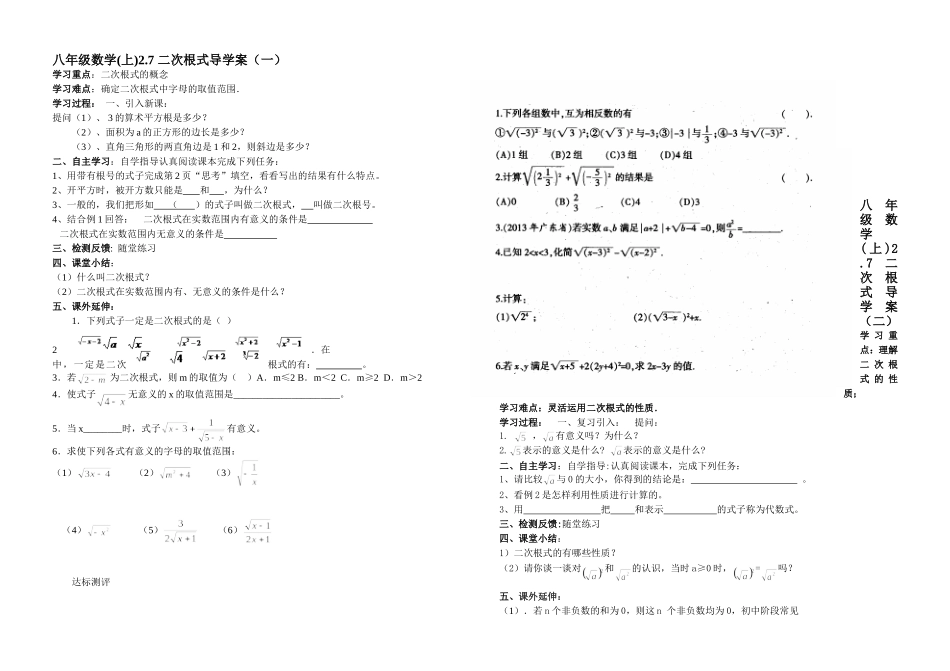 八年级数学(上)2.7 二次根式导学案（一）
学习重点：二次根式的概念
学习难点：确定二次根式中字母的取值范围.
学习过程： 一、引入新课：
提问（1）、3的算术平方根是多少？
（2）、面积为a的正方形的边长是多少？
（3）、直角三角形的两直角边是1和2，则斜边是多少？
二、自主学习：自学指导认真阅读课本完成下列任务：
1、用带有根号的式子完成第2页“思考”填空，看看写出的结果有什么特点。
2、开平方时，被开方数只能是___和___，为什么？
3、一般的，我们把形如___(____)的式子叫做二次根式，__叫做二次根号。
4、结合例1回答： 二次根式在实数范围内有意义的条件是______________
二次根式在实数范围内无意义的条件是___________
三、检测反馈：随堂练习
四、课堂小结：
（1）什么叫二次根式？
（2）二次根式在实数范围内有、无意义的条件是什么？
五、课外延伸：
1．下列式子一定是二次根式的是（ ）
√(-x-2) √x √(x²+2) √(x²-2)
2 √a √x √(x²-2) √(x²+2) √(x²-1) ．在
√a² √4 √(x+2) ³√-2
中，一定是二次根式的有：__________。
3．若√(2-m)为二次根式，则m的取值为（ ）A．m≤2 B．m＜2 C．m≥2 D．m＞2
4．使式子√(4-x)无意义的x的取值范围是______________________。
5．当x________时，式子√(x-3)+1/√(5-x)有意义。
6．求使下列各式有意义的字母的取值范围：
（1）√(3x-4) （2）√(m²+4) （3）√(-1/x)
（4）√(-x²) （5）3/(2√(x+1)) （6）√(x-1)/√(2x+1)
达标测评
1.下列各组数中,互为相反数的有 ( ).
①√(-3)²与(√3)²;②(√3)²与-3;③|-3|与1/3;④-3与√(-3)².
(A)1组 (B)2组 (C)3组 (D)4组
2.计算√(2·1/3)²+√(-5/3)²的结果是 ( ).
(A)0 (B)2/3 (C)4 (D)3
3.(2013年广东省)若实数a,b满足|a+2|+√(b-4)=0,则a²/b=_______.
4.已知2<x<3,化简√(x-3)²-√(x-2)².
5.计算:
(1)√2⁴; (2)(√(3-π))²+π.
6.若x、y满足√(x+5)+2(2y+4)²=0,求2x-3y的值.
八年级数学(上)2.7二次根式导学案（二）
学习重点：理解二次根式的性质；
学习难点：灵活运用二次根式的性质．
学习过程： 一、复习引入： 提问：
1. √5 ，√a有意义吗？为什么？
2.√5表示的意义是什么？ √a表示的意义是什么？
二、自主学习：自学指导：认真阅读课本，完成下列任务：
1、请比较√a与0的大小，你得到的结论是：______________________ 。
2、看例2是怎样利用性质进行计算的。
3、用________________把_____和表示___________的式子称为代数式。
三、检测反馈：随堂练习
四、课堂小结：
1）二次根式的有哪些性质？
（2）请你谈一谈对(√a)²和√a²的认识，当时a≥0时，(√a)²=√a²吗？
五、课外延伸：
（1）．若n个非负数的和为0，则这n 个非负数均为0，初中阶段常见